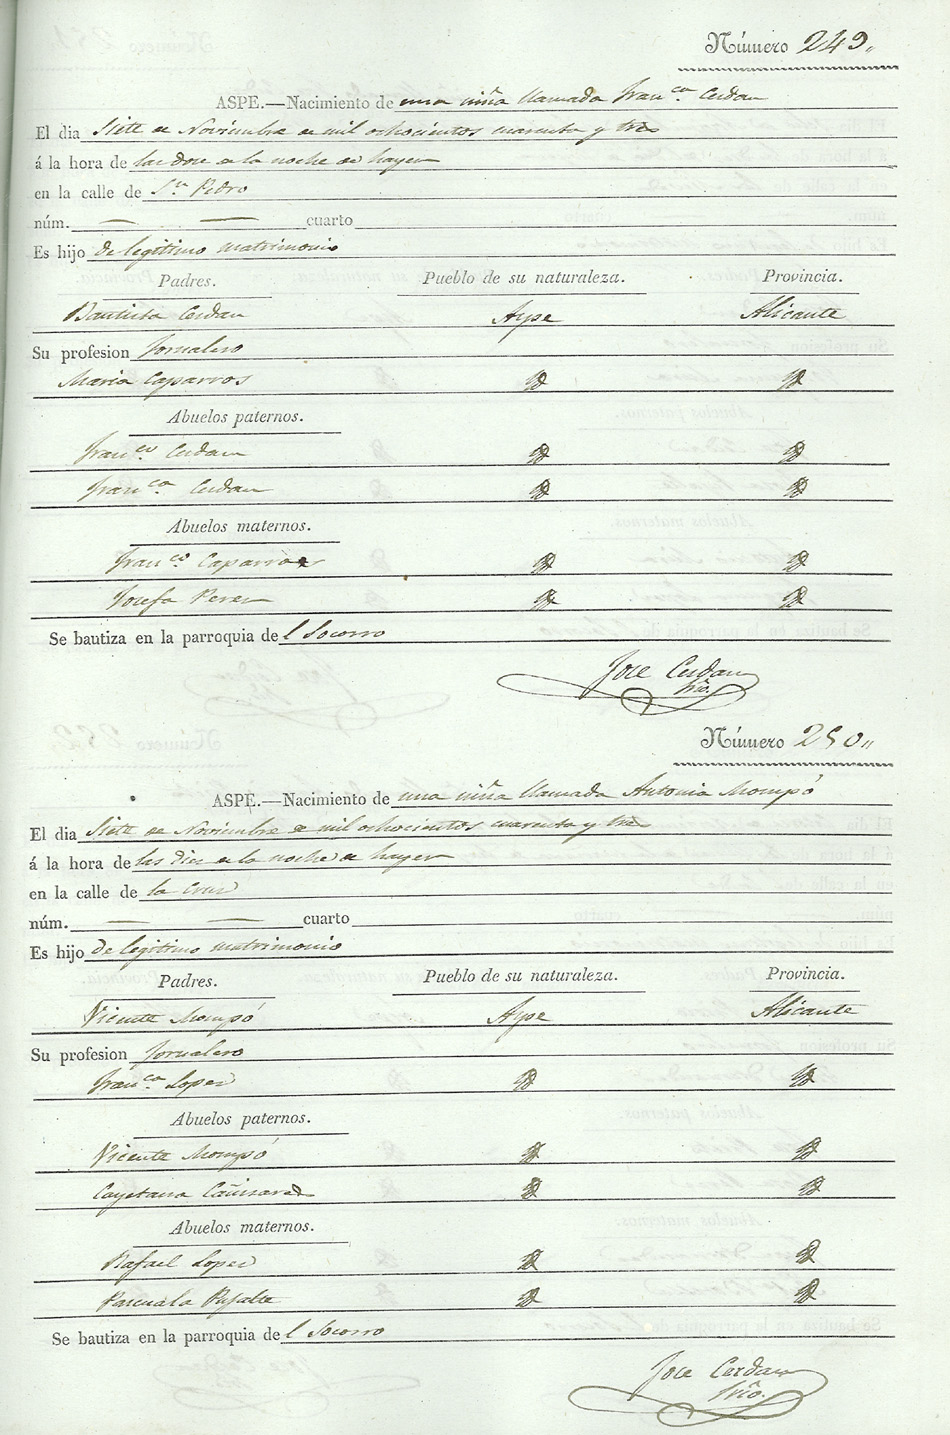 Número 249.
ASPE.—Nacimiento de una niña llamada Fran.ca Cerdan
El dia Siete de Noviembre de mil ochocientos cuarenta y tres
á la hora de las doce de la noche de hayer
en la calle de Sn Pedro
núm. — — cuarto
Es hijo de legitimo matrimonio
Padres. Pueblo de su naturaleza. Provincia.
Bautista Cerdan Aspe Alicante
Su profesion Jornalero
Maria Caparros
Abuelos paternos.
Fran.co Cerdan
Fran.ca Cerdan
Abuelos maternos.
Fran.co Caparros
Josefa Perez
Se bautiza en la parroquia del Socorro
Jose Cerdan
Srio.
Número 250.
ASPE.—Nacimiento de una niña llamada Antonia Mompó
El dia Siete de Noviembre de mil ochocientos cuarenta y tres
á la hora de las diez de la noche de hayer
en la calle de la Cruz
núm. — — cuarto
Es hijo de legitimo matrimonio
Padres. Pueblo de su naturaleza. Provincia.
Vicente Mompó Aspe Alicante
Su profesion Jornalero
Fran.ca Lopez
Abuelos paternos.
Vicente Mompó
Cayetana Cañizares
Abuelos maternos.
Rafael Lopez
Pascuala Pujalte
Se bautiza en la parroquia del Socorro
Jose Cerdan
Srio.